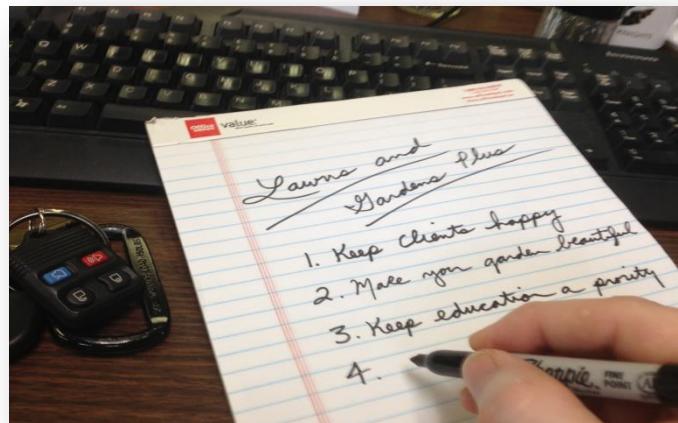 Office DEPOT value
Lawns and
Gardens Plus
1. Keep Clients happy
2. Make your garden beautiful
3. Keep education a prority
4.
Sharpie. FINE
POINT
lenovo